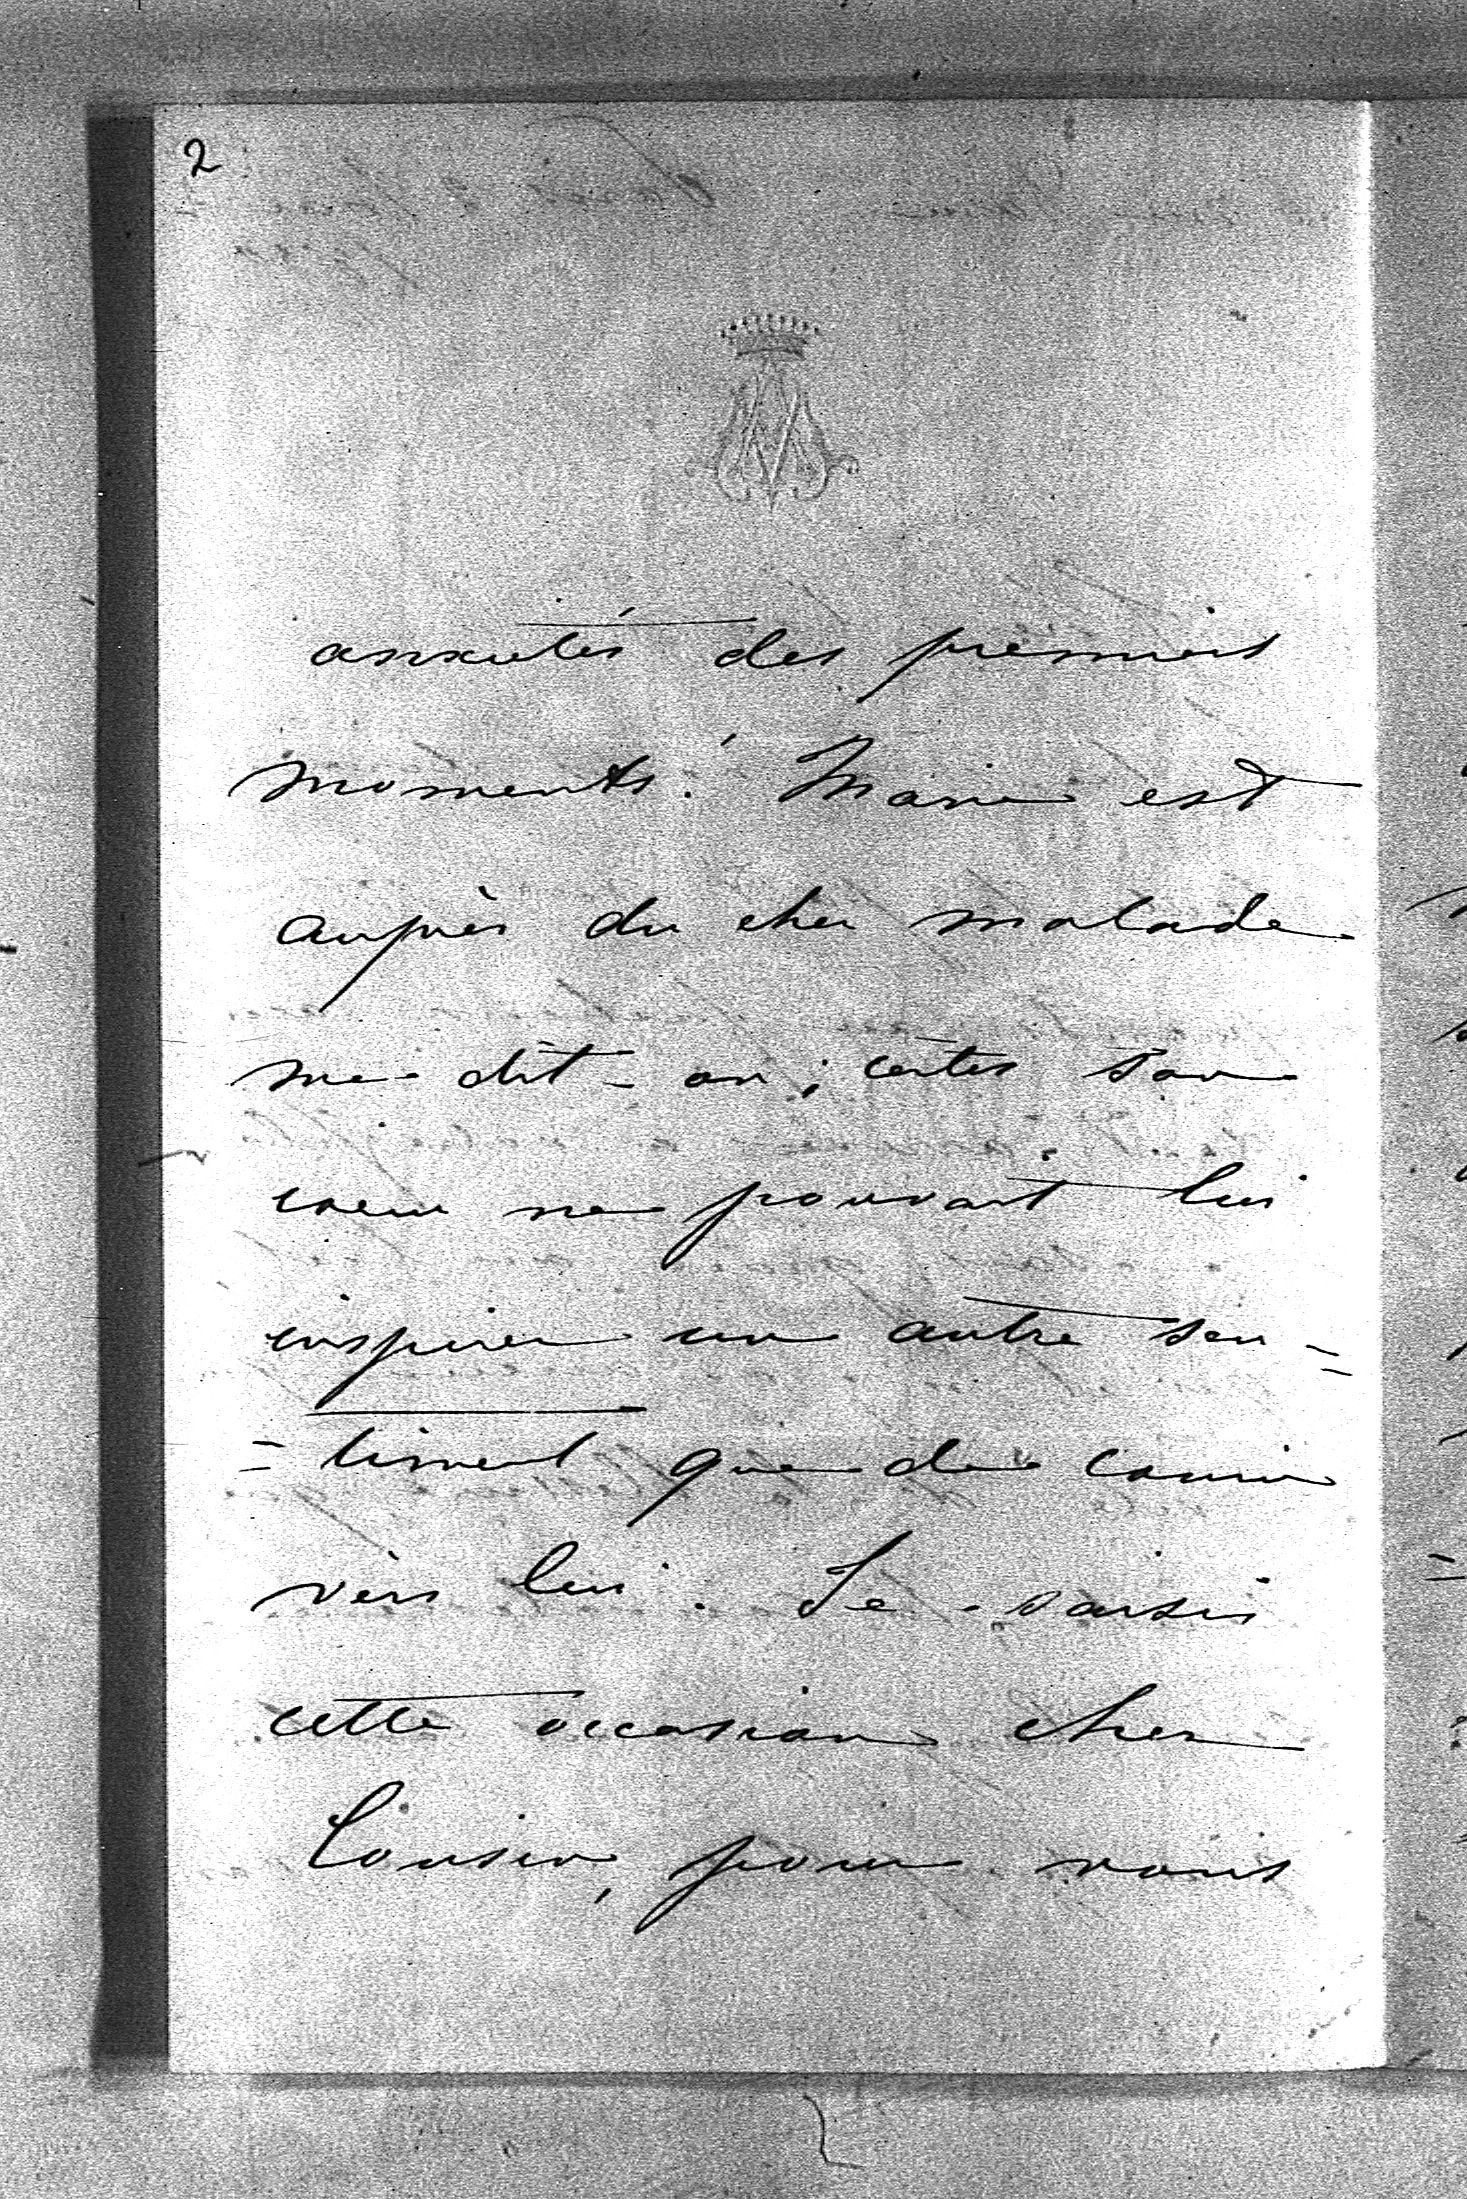 2
anxietés des premiers
moments! Marie est
auprès du cher malade
me dit-on; certes son
coeur ne pouvait lui
inspirer un autre sen=
=timent que de courir
vèrs lui. Je saisis
cette occasion cher
Cousin, pour vous